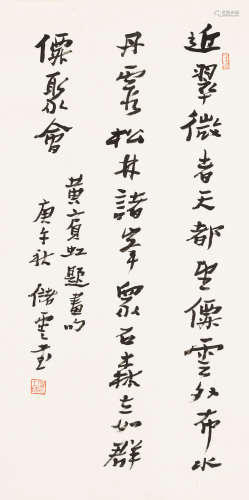 近翠微者天都望仙云外布水
丹霞松林諸峯眾石森立如群
僊聚會
黃賓虹題畫句
庚午秋 儲雲書